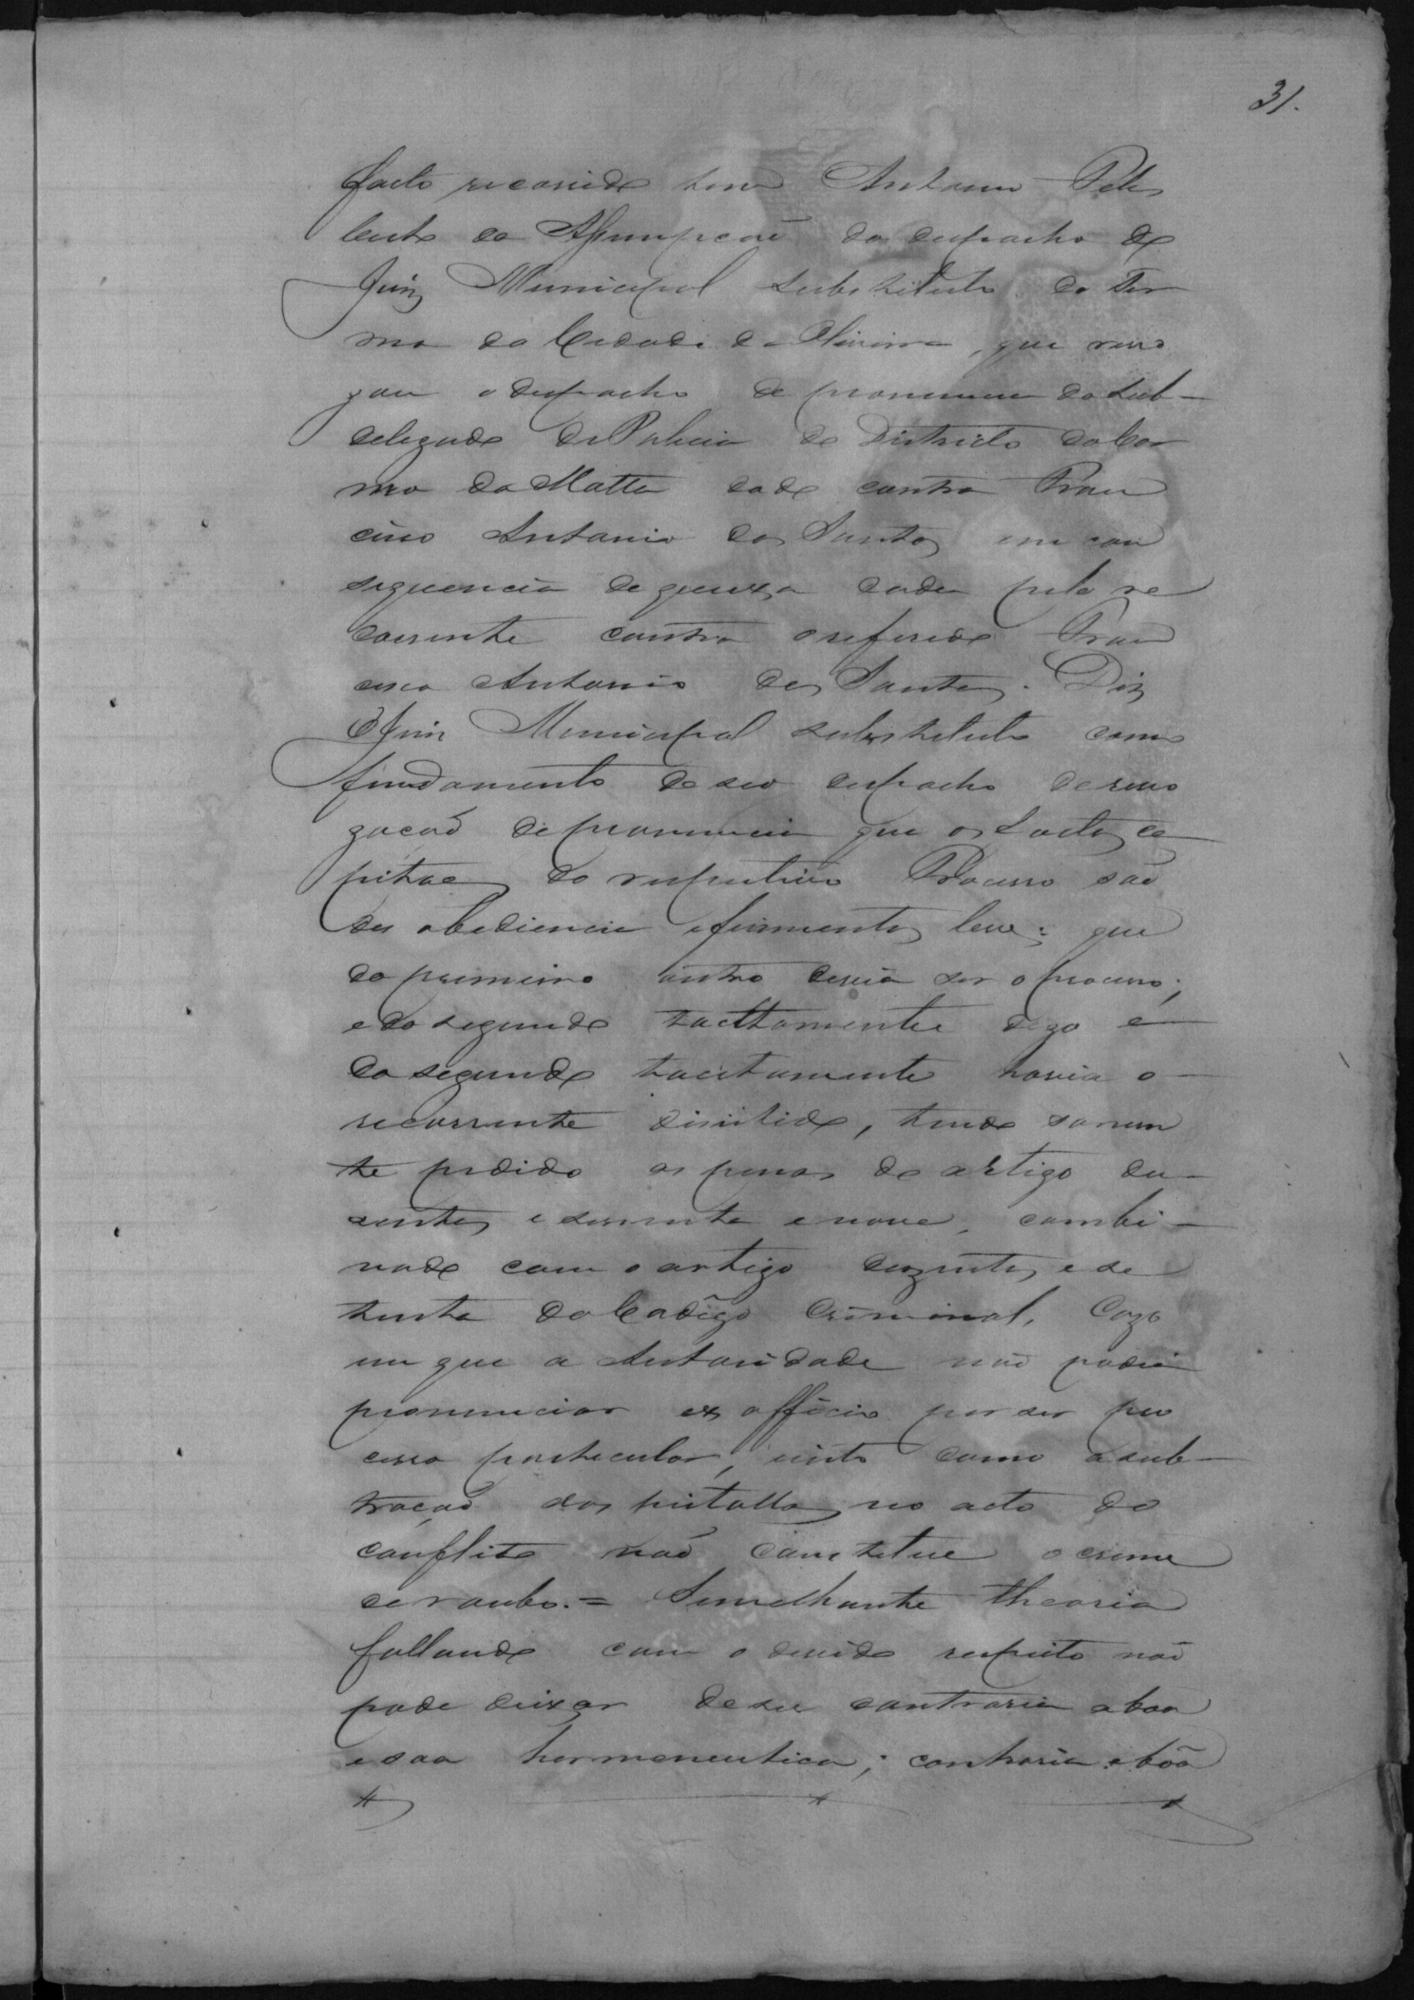 31.
facto recorrido tem Antonio Pete
lente da Assumpcaõ do despacho do
Juiz Municipal substituto do Ter
mo da Cidade de Oliveira, que revo
gou o despacho de pronuncia do Sub-
delegado de Policia do Districto do Car
mo da Matta dado contra Fran
cisco Antonio dos Santos em con
sequencia de queixa dada pelo re
corrente contra o referido Fran
cisco Antonio dos Santos. Diz
O Juiz Municipal substituto como
fundamento de seo despacho de revo
gacaõ de pronuncia que os factos ca
pitaes do respectivo Processo saõ
des obediencia e ferimentos leves: que
do primeiro outro devia ser o processo;
e do segundo tacttamente digo e
do segundo tacitamente havia o
recorrente disistido, tendo somen
te pedido as penas do artigo du-
zentos e secenta e nove, combi-
nado com o artigo duzentos e se
tenta do Codigo Criminal, Cazo
em que a Autoridade naõ podia
pronunciar ex officio por ser pro
cesso particular, visto como a sub-
traçaõ das pistollas no acto do
conflito naõ constitue o crime
de roubo. = Semelhante theoria
fallando com o devido respeito naõ
pode deixar de ser contraria a boa
e saa hermeneutica; contraria a bôa